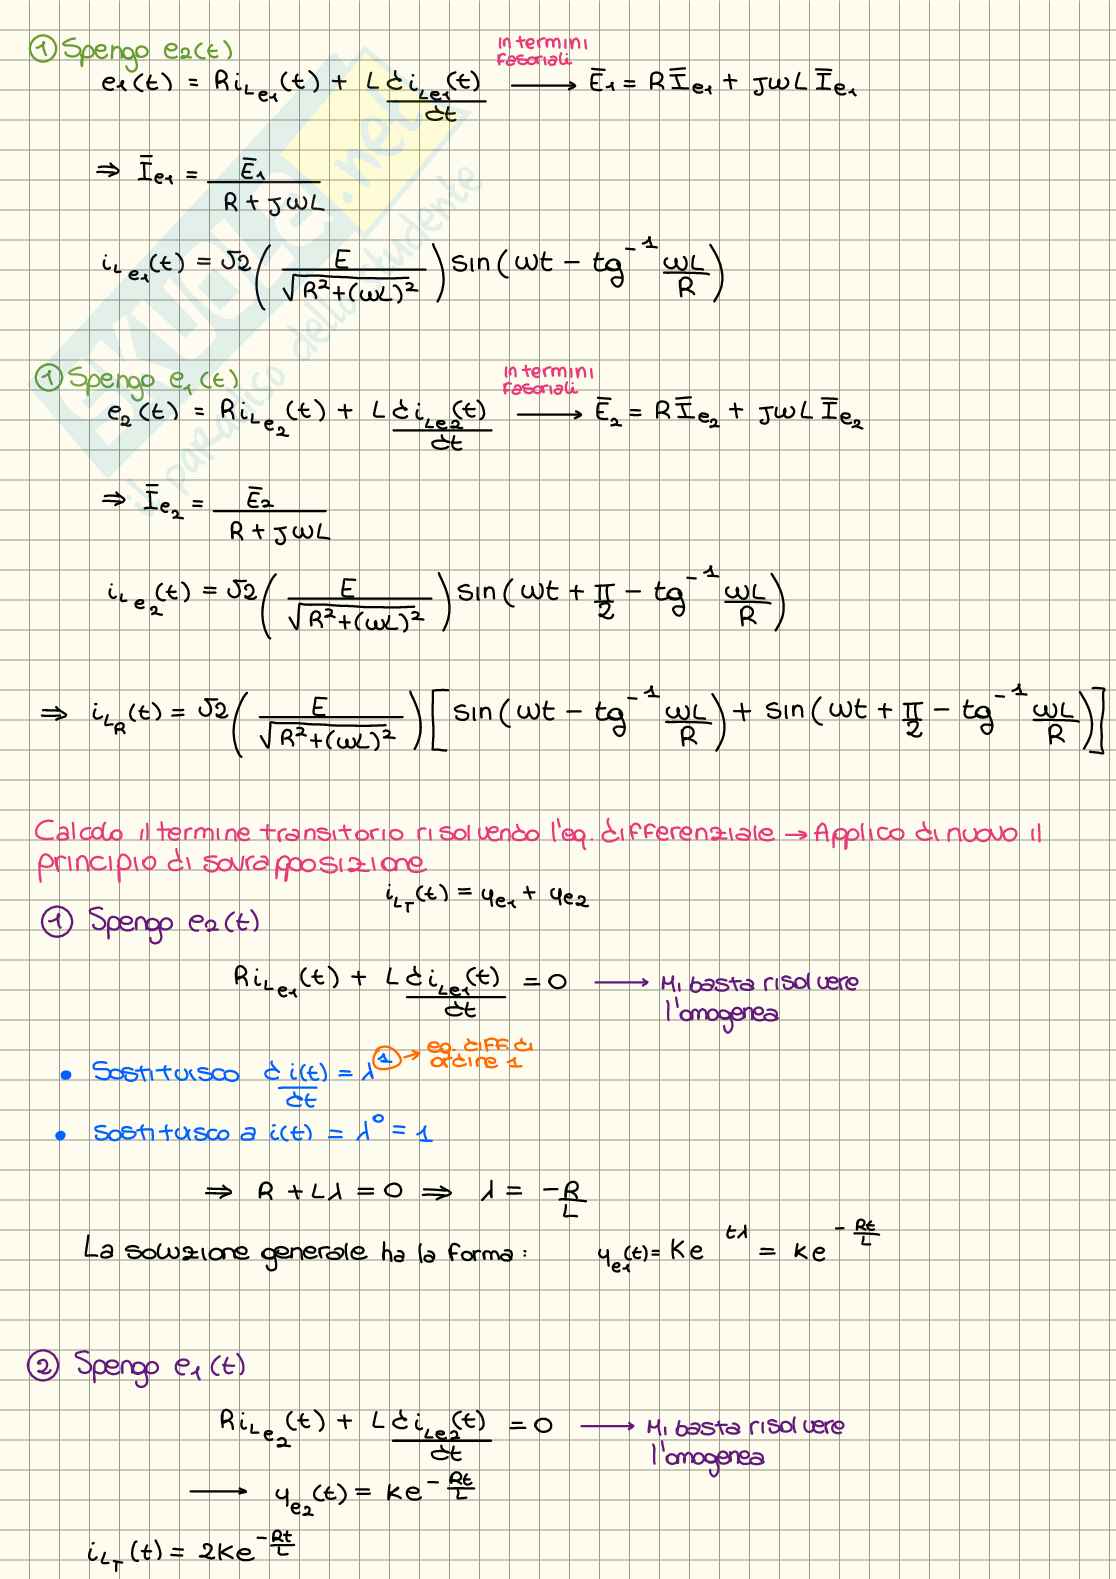 ① Spengo e₂(t)
e₁(t) = R i_Le₁(t) + L d i_Le₁(t)/dt ⟶ In termini fasoriali Ē₁ = R Ī_e₁ + jωL Ī_e₁
⇒ Ī_e₁ = Ē₁ / (R + jωL)
i_Le₁(t) = √2 ( E / √(R²+(ωL)²) ) sin(ωt − tg⁻¹ ωL/R)
① Spengo e₁(t)
e₂(t) = R i_Le₂(t) + L d i_Le₂(t)/dt ⟶ In termini fasoriali Ē₂ = R Ī_e₂ + jωL Ī_e₂
⇒ Ī_e₂ = Ē₂ / (R + jωL)
i_Le₂(t) = √2 ( E / √(R²+(ωL)²) ) sin(ωt + π/2 − tg⁻¹ ωL/R)
⇒ i_LR(t) = √2 ( E / √(R²+(ωL)²) ) [ sin(ωt − tg⁻¹ ωL/R) + sin(ωt + π/2 − tg⁻¹ ωL/R) ]
Calcolo il termine transitorio risolvendo l'eq. differenziale → Applico di nuovo il
principio di sovrapposizione
i_LT(t) = y_e₁ + y_e₂
① Spengo e₂(t)
R i_Le₁(t) + L d i_Le₁(t)/dt = 0 ⟶ Mi basta risolvere
l'omogenea
• Sostituisco d i(t)/dt = λ¹ → eq. diff. di ordine 1
• Sostituisco a i(t) = λ⁰ = 1
⇒ R + Lλ = 0 ⇒ λ = −R/L
La soluzione generale ha la forma: y_e₁(t) = K e^(tλ) = K e^(−Rt/L)
② Spengo e₁(t)
R i_Le₂(t) + L d i_Le₂(t)/dt = 0 ⟶ Mi basta risolvere
l'omogenea
⟶ y_e₂(t) = K e^(−Rt/L)
i_LT(t) = 2K e^(−Rt/L)
SKUOLA.net
il paradiso dello studente